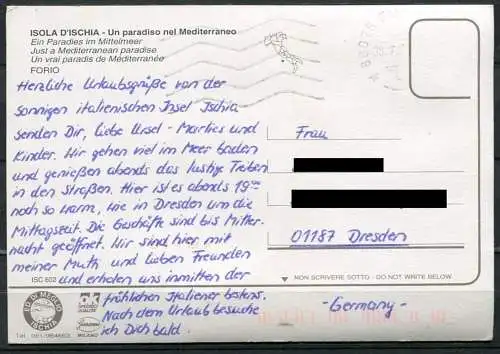 ISOLA D'ISCHIA - Un paradiso nel Mediterraneo
Ein Paradies im Mittelmeer
Just a Mediterranean paradise
Un vrai paradis de Méditerranée
FORIO
Herzliche Urlaubsgrüße von der
sonnigen italienischen Insel Ischia
senden Dir, liebe Ursel - Marlies und
Kinder. Wir gehen viel im Meer baden
und genießen abends das lustige Treiben
in den Straßen. Hier ist es abends 19⁰⁰
noch so warm, wie in Dresden um die
Mittagszeit. Die Geschäfte sind bis Mitter-
nacht geöffnet. Wir sind hier mit
meiner Mutti und lieben Freunden
und erholen uns inmitten der
fröhlichen Italiener bestens.
Nach dem Urlaub besuche
ich Dich bald.
Frau
01187 Dresden
- Germany -
ISC 602
NON SCRIVERE SOTTO - DO NOT WRITE BELOW
ISCHIA
MILANO